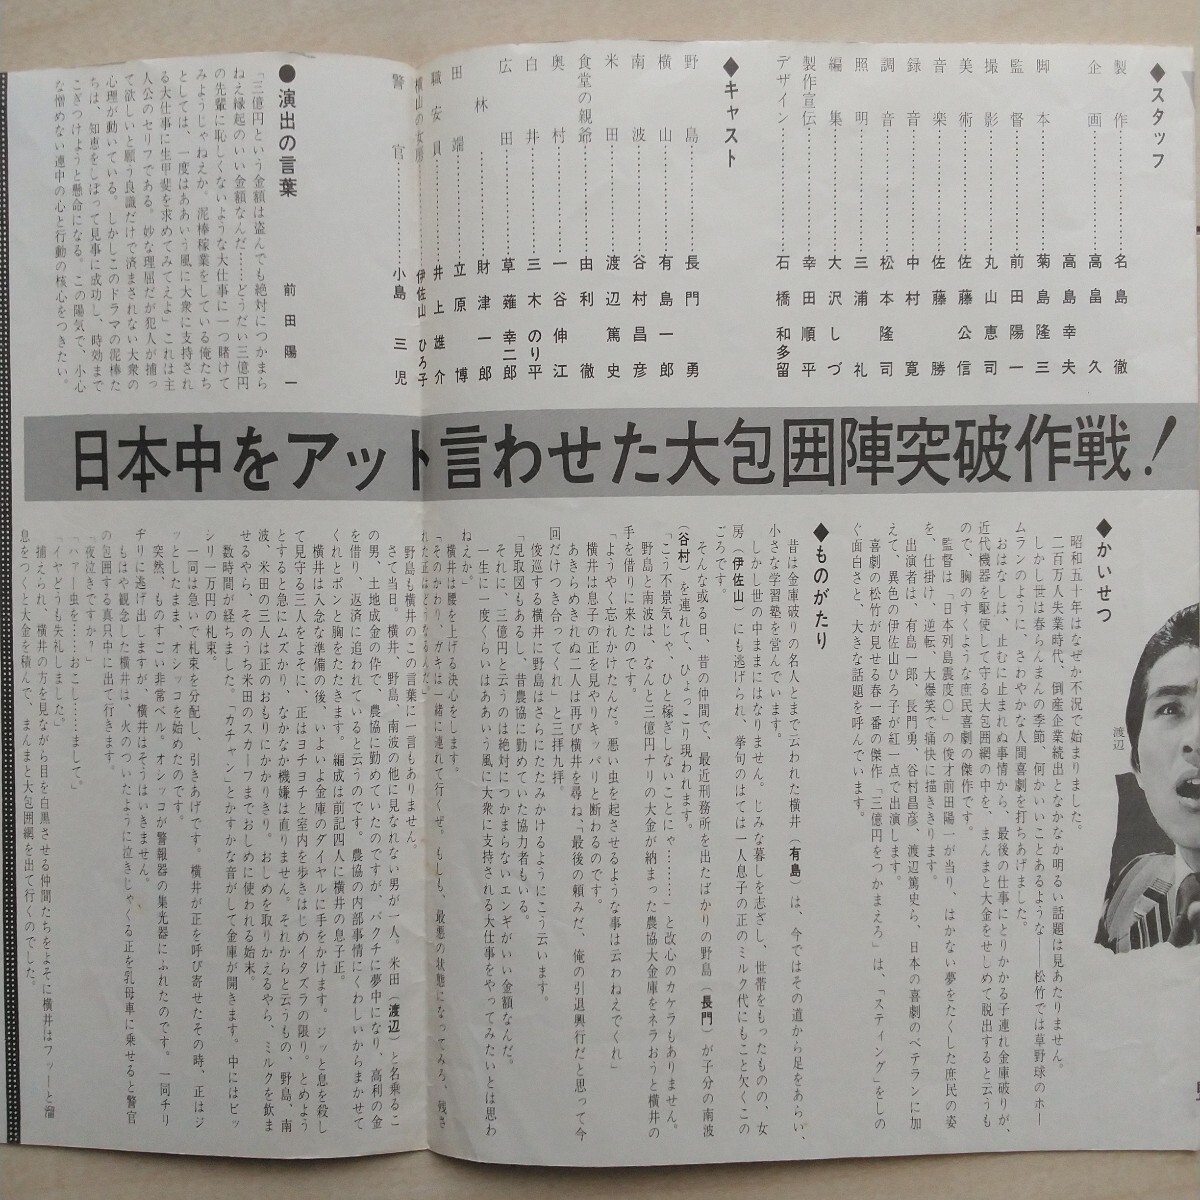 ◆スタッフ
製作……………名島 徹
企画……………高畠 久
高島幸夫
脚本……………菊島隆三
監督……………前田陽一
撮影……………丸山恵司
美術……………佐藤公信
音楽……………佐藤 勝
録音……………中村 寛
調音……………松本隆司
照明……………三浦 礼
編集……………大沢しづ
製作宣伝………幸田順平
デザイン………石橋和多留
◆キャスト
野島……………長門 勇
横山……………有島一郎
南波……………谷村昌彦
米田……………渡辺篤史
食堂の親爺……由利 徹
奥村……………一谷伸江
白井……………三木のり平
広田……………草薙幸二郎
林………………財津一郎
田端……………立原 博
職安員…………井上雄介
横山の女房……伊佐山ひろ子
警官……………小島三児
●演出の言葉 前田陽一
「三億円という金額は盗んでも絶対につかまら
ねえ縁起のいい金額なんだ…どうだい三億円
の先輩に恥しくないような大仕事に一つ賭けて
みようじゃねえか、泥棒稼業をしている俺たち
としては、一度はああいう風に大衆に支持され
る大仕事に生甲斐を求めてみてえよ」これは主
人公のセリフである。妙な理屈だが犯人が捕っ
て欲しいと願う良識だけで済まされない大衆の
心理が動いている。しかしこのドラマの泥棒た
ちは、知恵をしぼって見事に成功し、時効まで
こぎつけようと懸命になる。この陽気で、小心
な憎めない連中の心と行動の核心をつきたい。
日本中をアット言わせた大包囲陣突破作戦!
◆かいせつ
昭和五十年はなぜか不況で始まりました。
二百万人失業時代、倒産企業続出となかなか明るい話題は見あたりません。
しかし世は春らんまんの季節、何かいいことあるような――松竹では草野球のホー
ムランのように、さわやかな人間喜劇を打ちあげました。
おはなしは、止むに止まれぬ事情から、最後の仕事にとりかかる子連れ金庫破りが、
近代機器を駆使して守る大包囲網の中を、まんまと大金をせしめて脱出すると云うも
ので、胸のすくような庶民喜劇の傑作です。
監督は「日本列島震度0」の俊才前田陽一が当り、はかない夢をたくした庶民の姿
を、仕掛け、逆転、大爆笑で痛快に描ききります。
出演者は、有島一郎、長門勇、谷村昌彦、渡辺篤史ら、日本の喜劇のベテランに加
えて、異色の伊佐山ひろ子が紅一点で出演します。
喜劇の松竹が見せる春一番の傑作「三億円をつかまえろ」は、「スティング」をしの
ぐ面白さと、大きな話題を呼んでいます。
渡辺
◆ものがたり
昔は金庫破りの名人とまで云われた横井(有島)は、今ではその道から足をあらい、
小さな学習塾を営んでいます。
しかし世の中ままにはなりません。じみな暮しを志ざし、世帯をもったものの、女
房(伊佐山)にも逃げられ、挙句のはては一人息子の正のミルク代にもこと欠くこの
ごろです。
そんな或る日、昔の仲間で、最近刑務所を出たばかりの野島(長門)が子分の南波
(谷村)を連れて、ひょっこり現われます。
「こう不景気じゃ、ひと稼ぎしないことにゃ………」と改心のカケラもありません。
野島と南波は、なんと三億円ナリの大金が納まった農協大金庫をネラおうと横井の
手を借りに来たのです。
「ようやく忘れかけたんだ。悪い虫を起させるような事は云わねえでくれ」
横井は息子の正を見やりキッパリと断わるのです。
あきらめきれぬ二人は再び横井を尋ね、「最後の頼みだ、俺の引退興行だと思って今
回だけつき合ってくれ」と三拝九拝。
俊巡する横井に野島はさらにたたみかけるようにこう云います。
「見取図もあるし、昔農協に勤めていた協力者もいる。
それに、三億円と云うのは絶対につかまらないエンギがいい金額なんだ。
一生に一度くらいはああいう風に大衆に支持される大仕事をやってみたいとは思わ
ねえか。
横井は腰を上げる決心をします。
「そのかわり、ガキは一緒に連れて行くぜ。もしも、最悪の状態になってみろ、残さ
れた正はどうなるんだ。」
野島も横井のこの言葉に一言もありません。
さて当日。横井、野島、南波の他に見なれない男が一人。米田(渡辺)と名乗るこ
の男、土地成金の伜で、農協に勤めていたのですが、バクチに夢中になり、高利の金
を借り、返済に追われていると云うのです。農協の内部事情にくわしいからまかせて
くれとポンと胸をたたきます。編成は前記四人に横井の息子正。
横井は入念な準備の後、いよいよ金庫のダイヤルに手をかけます。ジッと息を殺し
て見守る三人をよそに、正はヨチヨチと室内を歩きはじめイタズラの限り。とめよう
とすると急にムズかり、なかなか機嫌は直りません。それからと云うもの、野島、南
波、米田の三人は正のおもりにかかりきり。おしめを取りかえるやら、ミルクを飲ま
せるやら、そのうち米田のスカーフまでおしめに使われる始末。
数時間が経ちました。「カチャン」とかすかな音がして金庫が開きます。中にはビッ
シリ一万円の札束。
一同は急いで札束を分配し、引きあげです。横井が正を呼び寄せたその時、正はジ
ッとしたまま、オシッコを始めたのです。
突然、ものすごい非常ベル。オシッコが警報器の集光器にふれたのです。一同チリ
ヂリに逃げ出しますが、横井はそうはいきません。
もはや観念した横井は、火のついたように泣きじゃくる正を乳母車に乗せると警官
の包囲する真只中に出て行きます。
「夜泣きですか?」
「ハァァ虫を……おこし……まして。」
「イヤどうも失礼しました。」
捕えられ、横井の方を見ながら目を白黒させる仲間たちをよそに横井はフッーと溜
息をつくと大金を積んで、まんまと大包囲網を出て行くのでした。